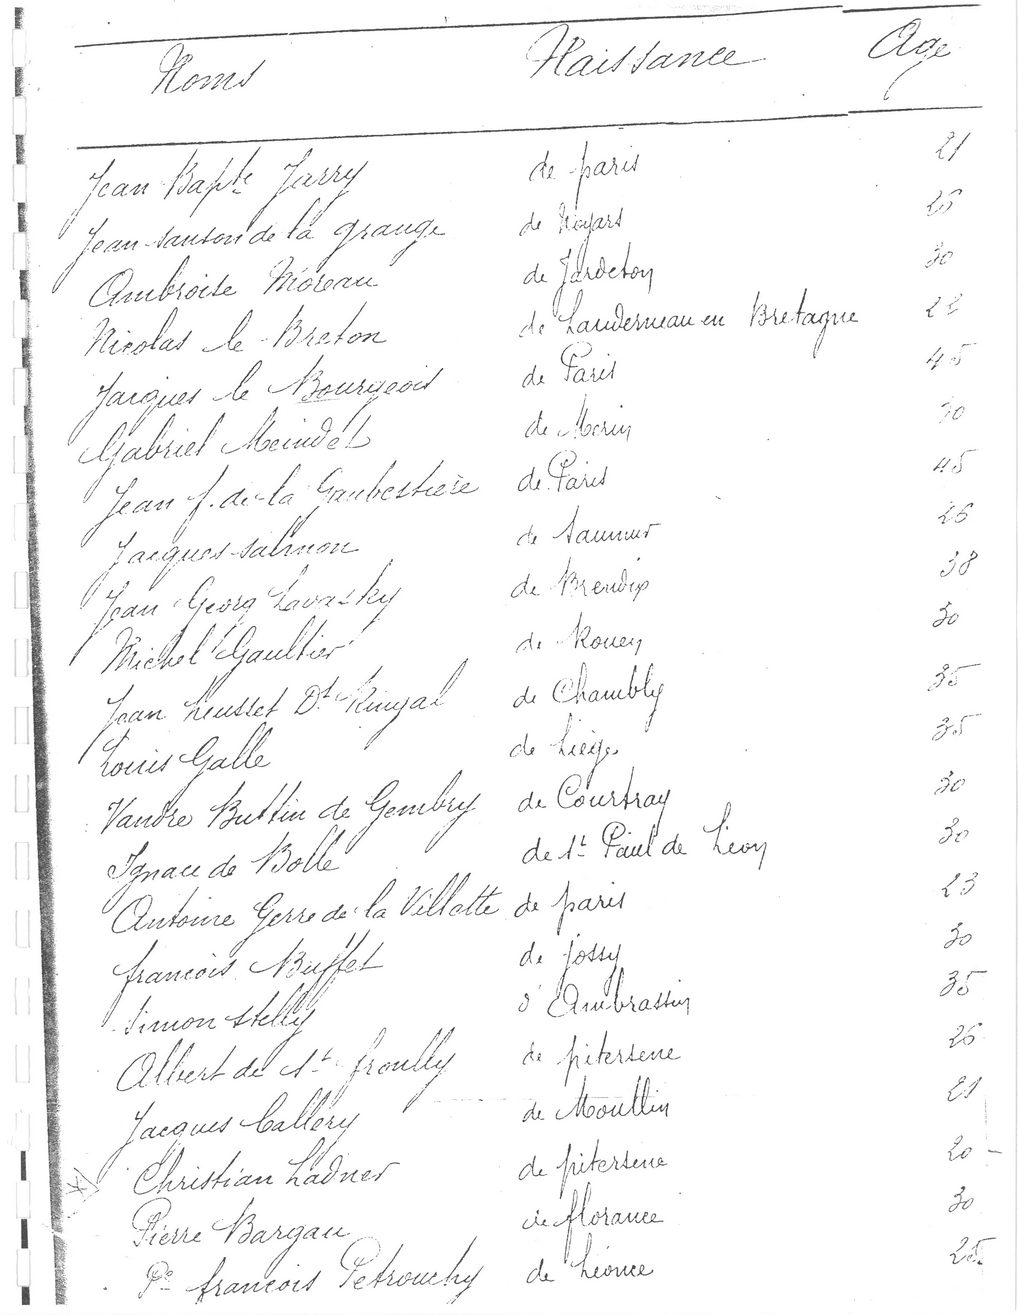 Noms Naissance Age
Jean Bapte Jarry de paris 21
Jean-Santon de la grange de Noyars 25
Ambroise Moreau de Jardeton 30
Nicolas le Breton de Landerneau en Bretagne 22
Jacques le Bourgeois de Paris 45
Gabriel Meindet de Morin 30
Jean f. de la Gaubestiere de Paris 45
Jacques Salmon de Saumur 26
Jean Georg Lavasky de Brendix 38
Michel Gaultier de Rouen 30
Jean Heusset Dt Kingal de Chambly 35
Louis Galle de Liége 35
Vandre Buttin de Gembry de Courtray 30
Ignace de Bolle de St Paul de Léon 30
Antoine Gerre de la Villatte de paris 23
francois Buffet de jossy 30
Simon Stelly d'Ambrassin 35
Albert de St froully de pitersene 26
Jacques Callery de Moullin 21
Christian Ladner de pitersene 20
Pierre Bargau de florance 30
Pe francois Petrouchy de Léonce 25